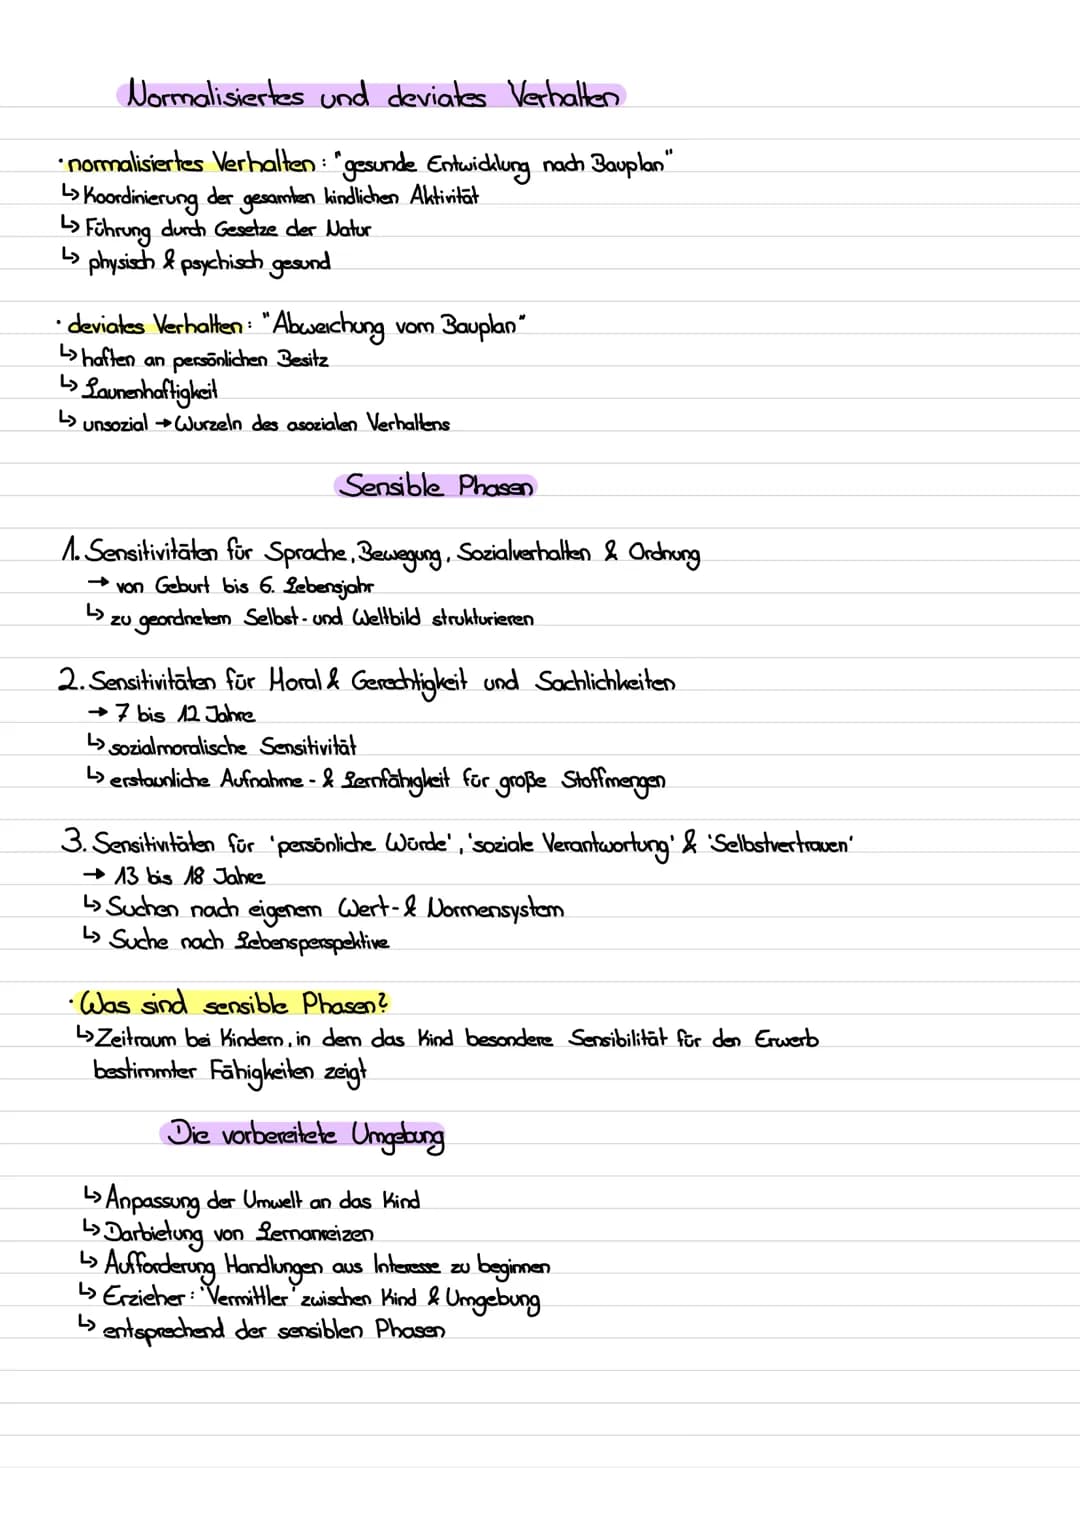 Normalisiertes und deviates Verhalten
· normalisiertes Verhalten: "gesunde Entwicklung nach Bauplan"
↳ Koordinierung der gesamten kindlichen Aktivität
↳ Führung durch Gesetze der Natur
↳ physisch & psychisch gesund
· deviates Verhalten: "Abweichung vom Bauplan"
↳ haften an persönlichen Besitz
↳ Launenhaftigkeit
↳ unsozial → Wurzeln des asozialen Verhaltens
Sensible Phasen
1. Sensitivitäten für Sprache, Bewegung, Sozialverhalten & Ordnung
→ von Geburt bis 6. Lebensjahr
↳ zu geordnetem Selbst- und Weltbild strukturieren
2. Sensitivitäten für Moral & Gerechtigkeit und Sachlichkeiten
→ 7 bis 12 Jahre
↳ sozialmoralische Sensitivität
↳ erstaunliche Aufnahme- & Lernfähigkeit für große Stoffmengen
3. Sensitivitäten für 'persönliche Würde', 'soziale Verantwortung' & 'Selbstvertrauen'
→ 13 bis 18 Jahre
↳ Suchen nach eigenem Wert- & Normensystem
↳ Suche nach Lebensperspektive
· Was sind sensible Phasen?
↳ Zeitraum bei Kindern, in dem das Kind besondere Sensibilität für den Erwerb
bestimmter Fähigkeiten zeigt
Die vorbereitete Umgebung
↳ Anpassung der Umwelt an das Kind
↳ Darbietung von Lernanreizen
↳ Aufforderung Handlungen aus Interesse zu beginnen
↳ Erzieher: 'Vermittler' zwischen Kind & Umgebung
↳ entsprechend der sensiblen Phasen